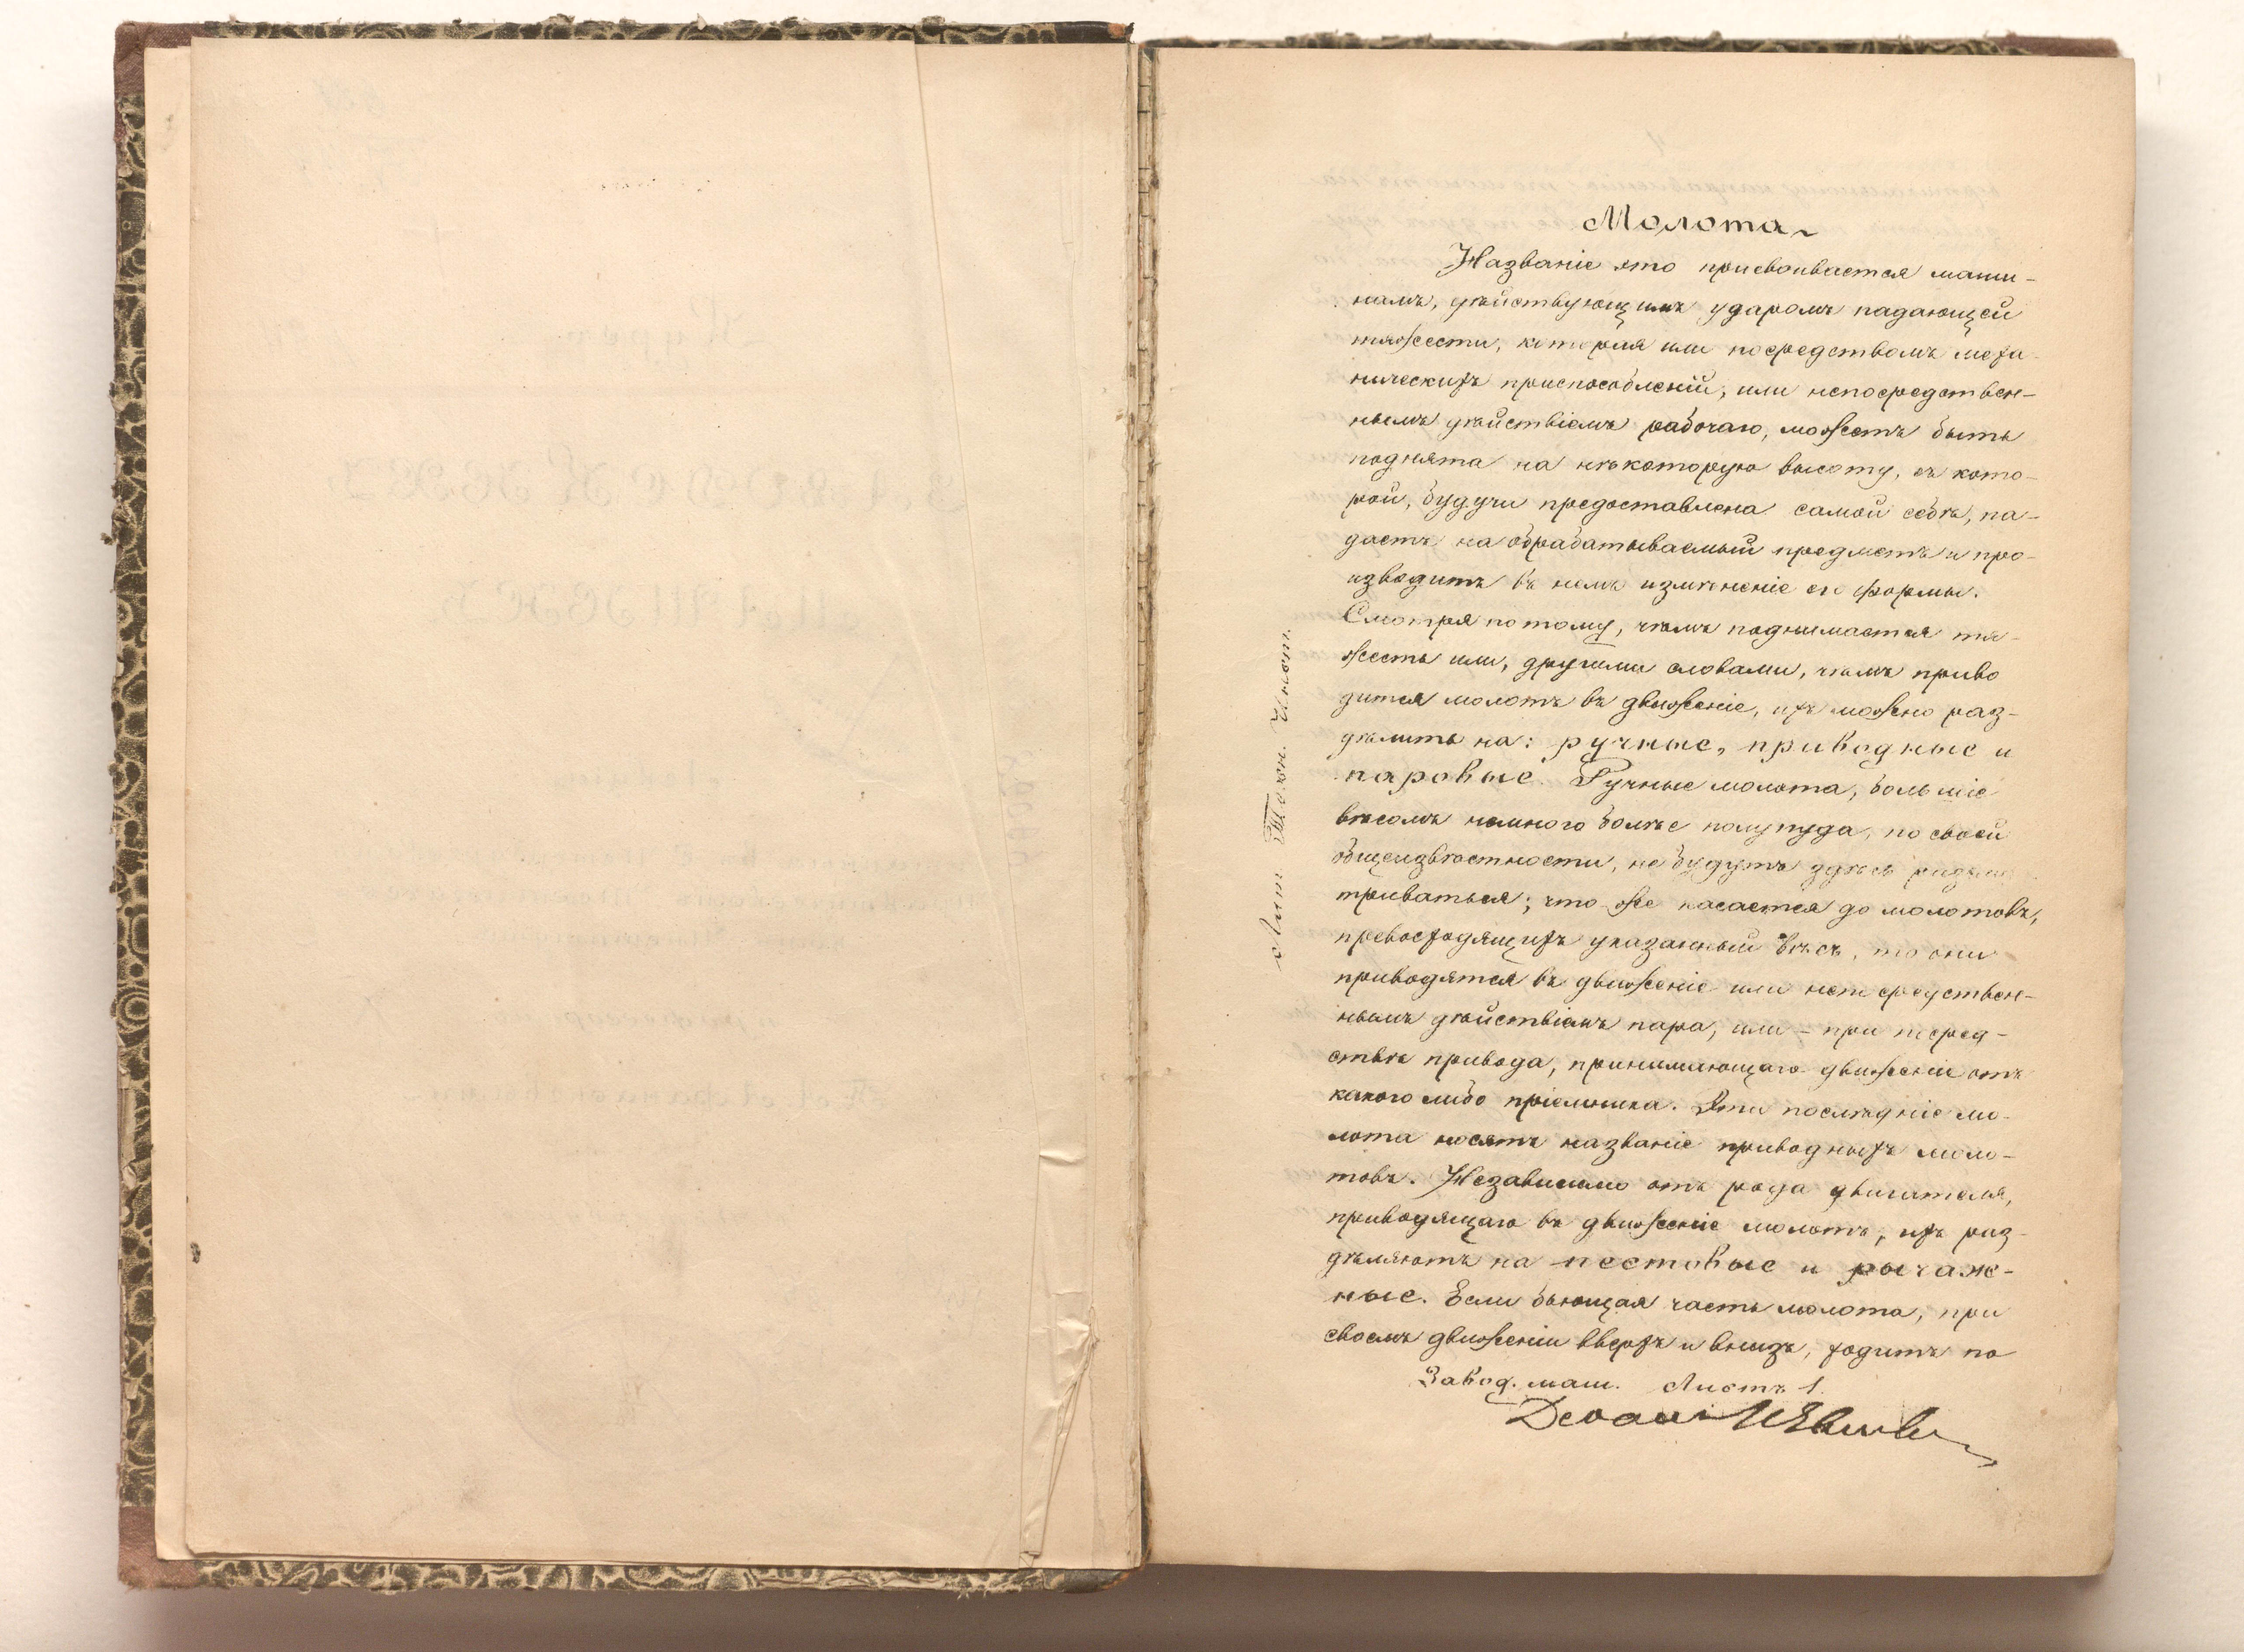 Молота
Названіе это присвоивается маши-
намъ, дѣйствующимъ ударомъ падающей
тяжести, которая или посредствомъ меха-
ническихъ приспособленій, или непосредствен-
нымъ дѣйствіемъ рабочаго, можетъ быть
поднята на нѣкоторую высоту, съ кото-
рой, будучи предоставлена самой себѣ, па-
даетъ на обрабатываемый предметъ и про-
изводитъ въ немъ измѣненіе его формы.
Смотря потому, чѣмъ поднимается тя-
жесть или, другими словами, чѣмъ приво
дится молотъ въ движеніе, ихъ можно раз-
дѣлить на: ручные, приводные и
паровые. Ручные молота, большіе
вѣсомъ немного болѣе полупуда, по своей
общеизвѣстности, не будутъ здѣсь разсма
триваться; что же касается до молотовъ,
превосходящихъ указанный вѣсъ, то они
приводятся въ движеніе или непосредствен-
нымъ дѣйствіемъ пара, или – при посред-
ствѣ привода, принимающаго движеніе отъ
какого либо пріемника. Эти послѣдніе мо-
лота носятъ названіе приводныхъ моло-
товъ. Независимо отъ рода двигателя,
приводящаго въ движеніе молотъ, ихъ раз-
дѣляютъ на пестовые и рычаж-
ные. Если бьющая часть молота, при
своемъ движеніи вверхъ и внизъ, ходитъ по
Завод. маш. Листъ 1.
Лит. Техн. Инст.